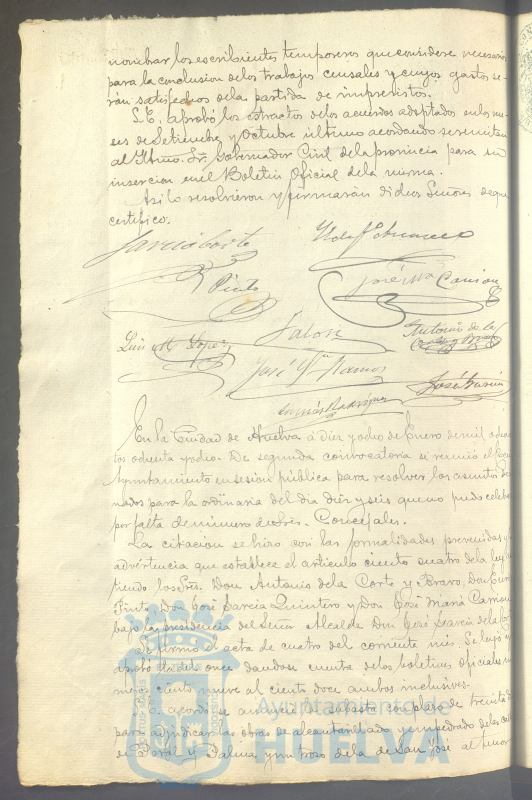 nombrar los escribientes temporeros que considere necesarios
para la conclusion de los trabajos censales y cuyos gastos se-
rán satisfechos de la partida de imprevistos.
S.E. aprobó los extractos de los acuerdos adoptados en los me-
ses de Setiembre y Octubre último acordando se remitan
al Iltmo. Sr. Gobernador Civil de la provincia para su
insercion en el Boletin Oficial de la misma.
Asi lo resolvieron y firmarán dichos Señores de que
certifico.
Garcia Corte
Pinto
José Mª Carrion
Luis M. Lopez
Antonio de la
Corte y Bravo
José Mª Ramos
José Garcia
En la Ciudad de Huelva á diez y ocho de Enero de mil ochocien
tos ochenta y ocho. De segunda convocatoria se reunió el
Ayuntamiento en sesion pública para resolver los asuntos
nados para la ordinaria del dia diez y seis que no pudo celeb
por falta de número de Sres. Concejales.
La citacion se hizo con las formalidades prevenidas y
advertencia que establece el articulo ciento cuatro de la ley
tiendo los Sres. Don Antonio de la Corte y Bravo, Don
Pinto Don José Garcia Quintero y Don José Maria Carrion
bajo la presidencia del Señor Alcalde Don José Garcia
Se firmó el acta de cuatro del corriente mes. Se leyó y
aprobó la del once dandose cuenta de los boletines oficiales
mero ciento nueve al ciento doce ambos inclusives.
Se acordó se anuncie la subasta en plazo de treinta d
para adjudicar las obras de alcantarillado y empedrado de las
el Poral y Palma y un trozo de la de San José al tenor
Ayuntamiento de
HUELVA